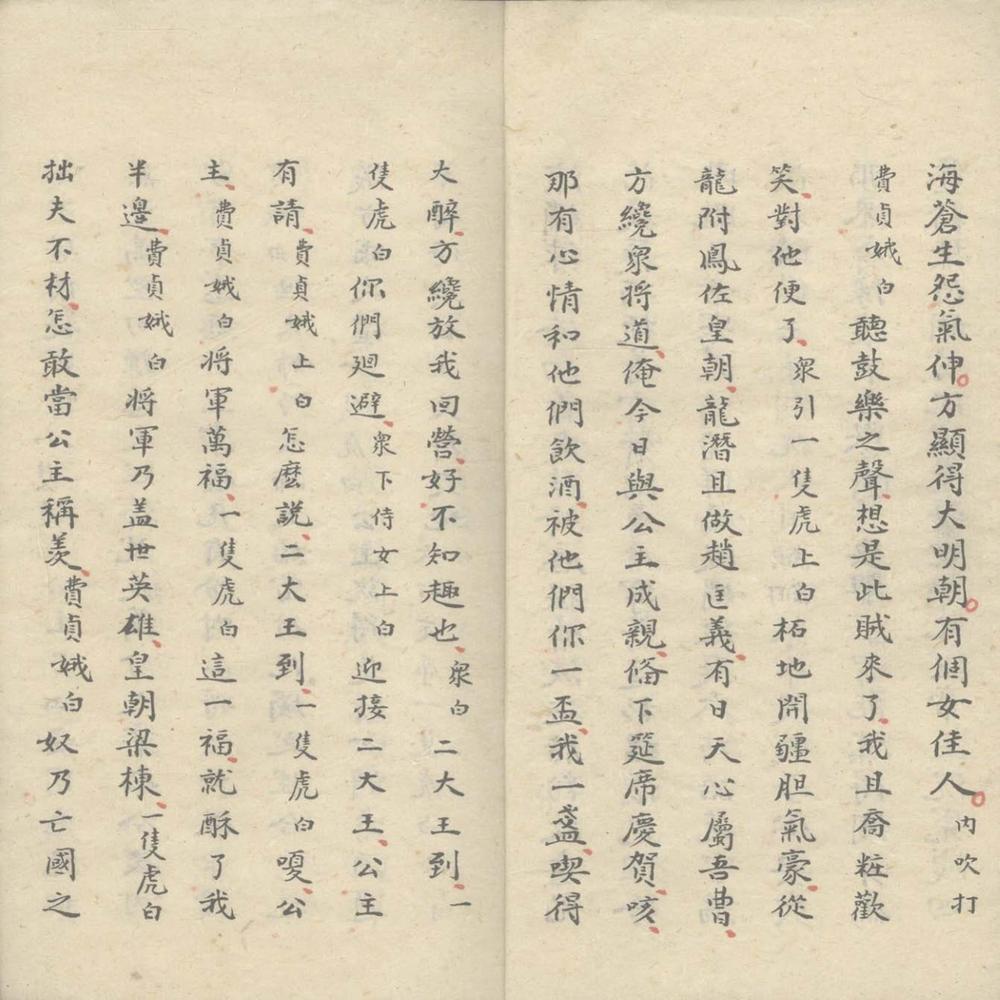 海蒼生怨氣伸。方顯得大明朝。有個女佳人。內吹打
費貞娥白 聽鼓樂之聲、想是此賊來了、我且喬粧歡
笑、對他便了、衆引一隻虎上白 柘地開疆胆氣豪、從
龍附鳳佐皇朝、龍潛且做趙匡義、有日天心屬吾曹、
方纔衆將道、俺今日與公主成親、俻下筵席慶賀、咳、
那有心情和他們飲酒、被他們你一盃、我一盞、喫得
大醉、方纔放我回營、好不知趣也、衆白 二大王到、一
隻虎白 你們廻避、衆下侍女上白 迎接二大王、公主
有請、費貞娥上白 怎麽說、二大王到、一隻虎白 嗄、公
主、費貞娥白 將軍萬福、一隻虎白 這一福、就酥了我
半邊、費貞娥白 將軍乃盖世英雄、皇朝梁棟、一隻虎白
拙夫不材、怎敢當公主稱羨、費貞娥白 奴乃亡國之